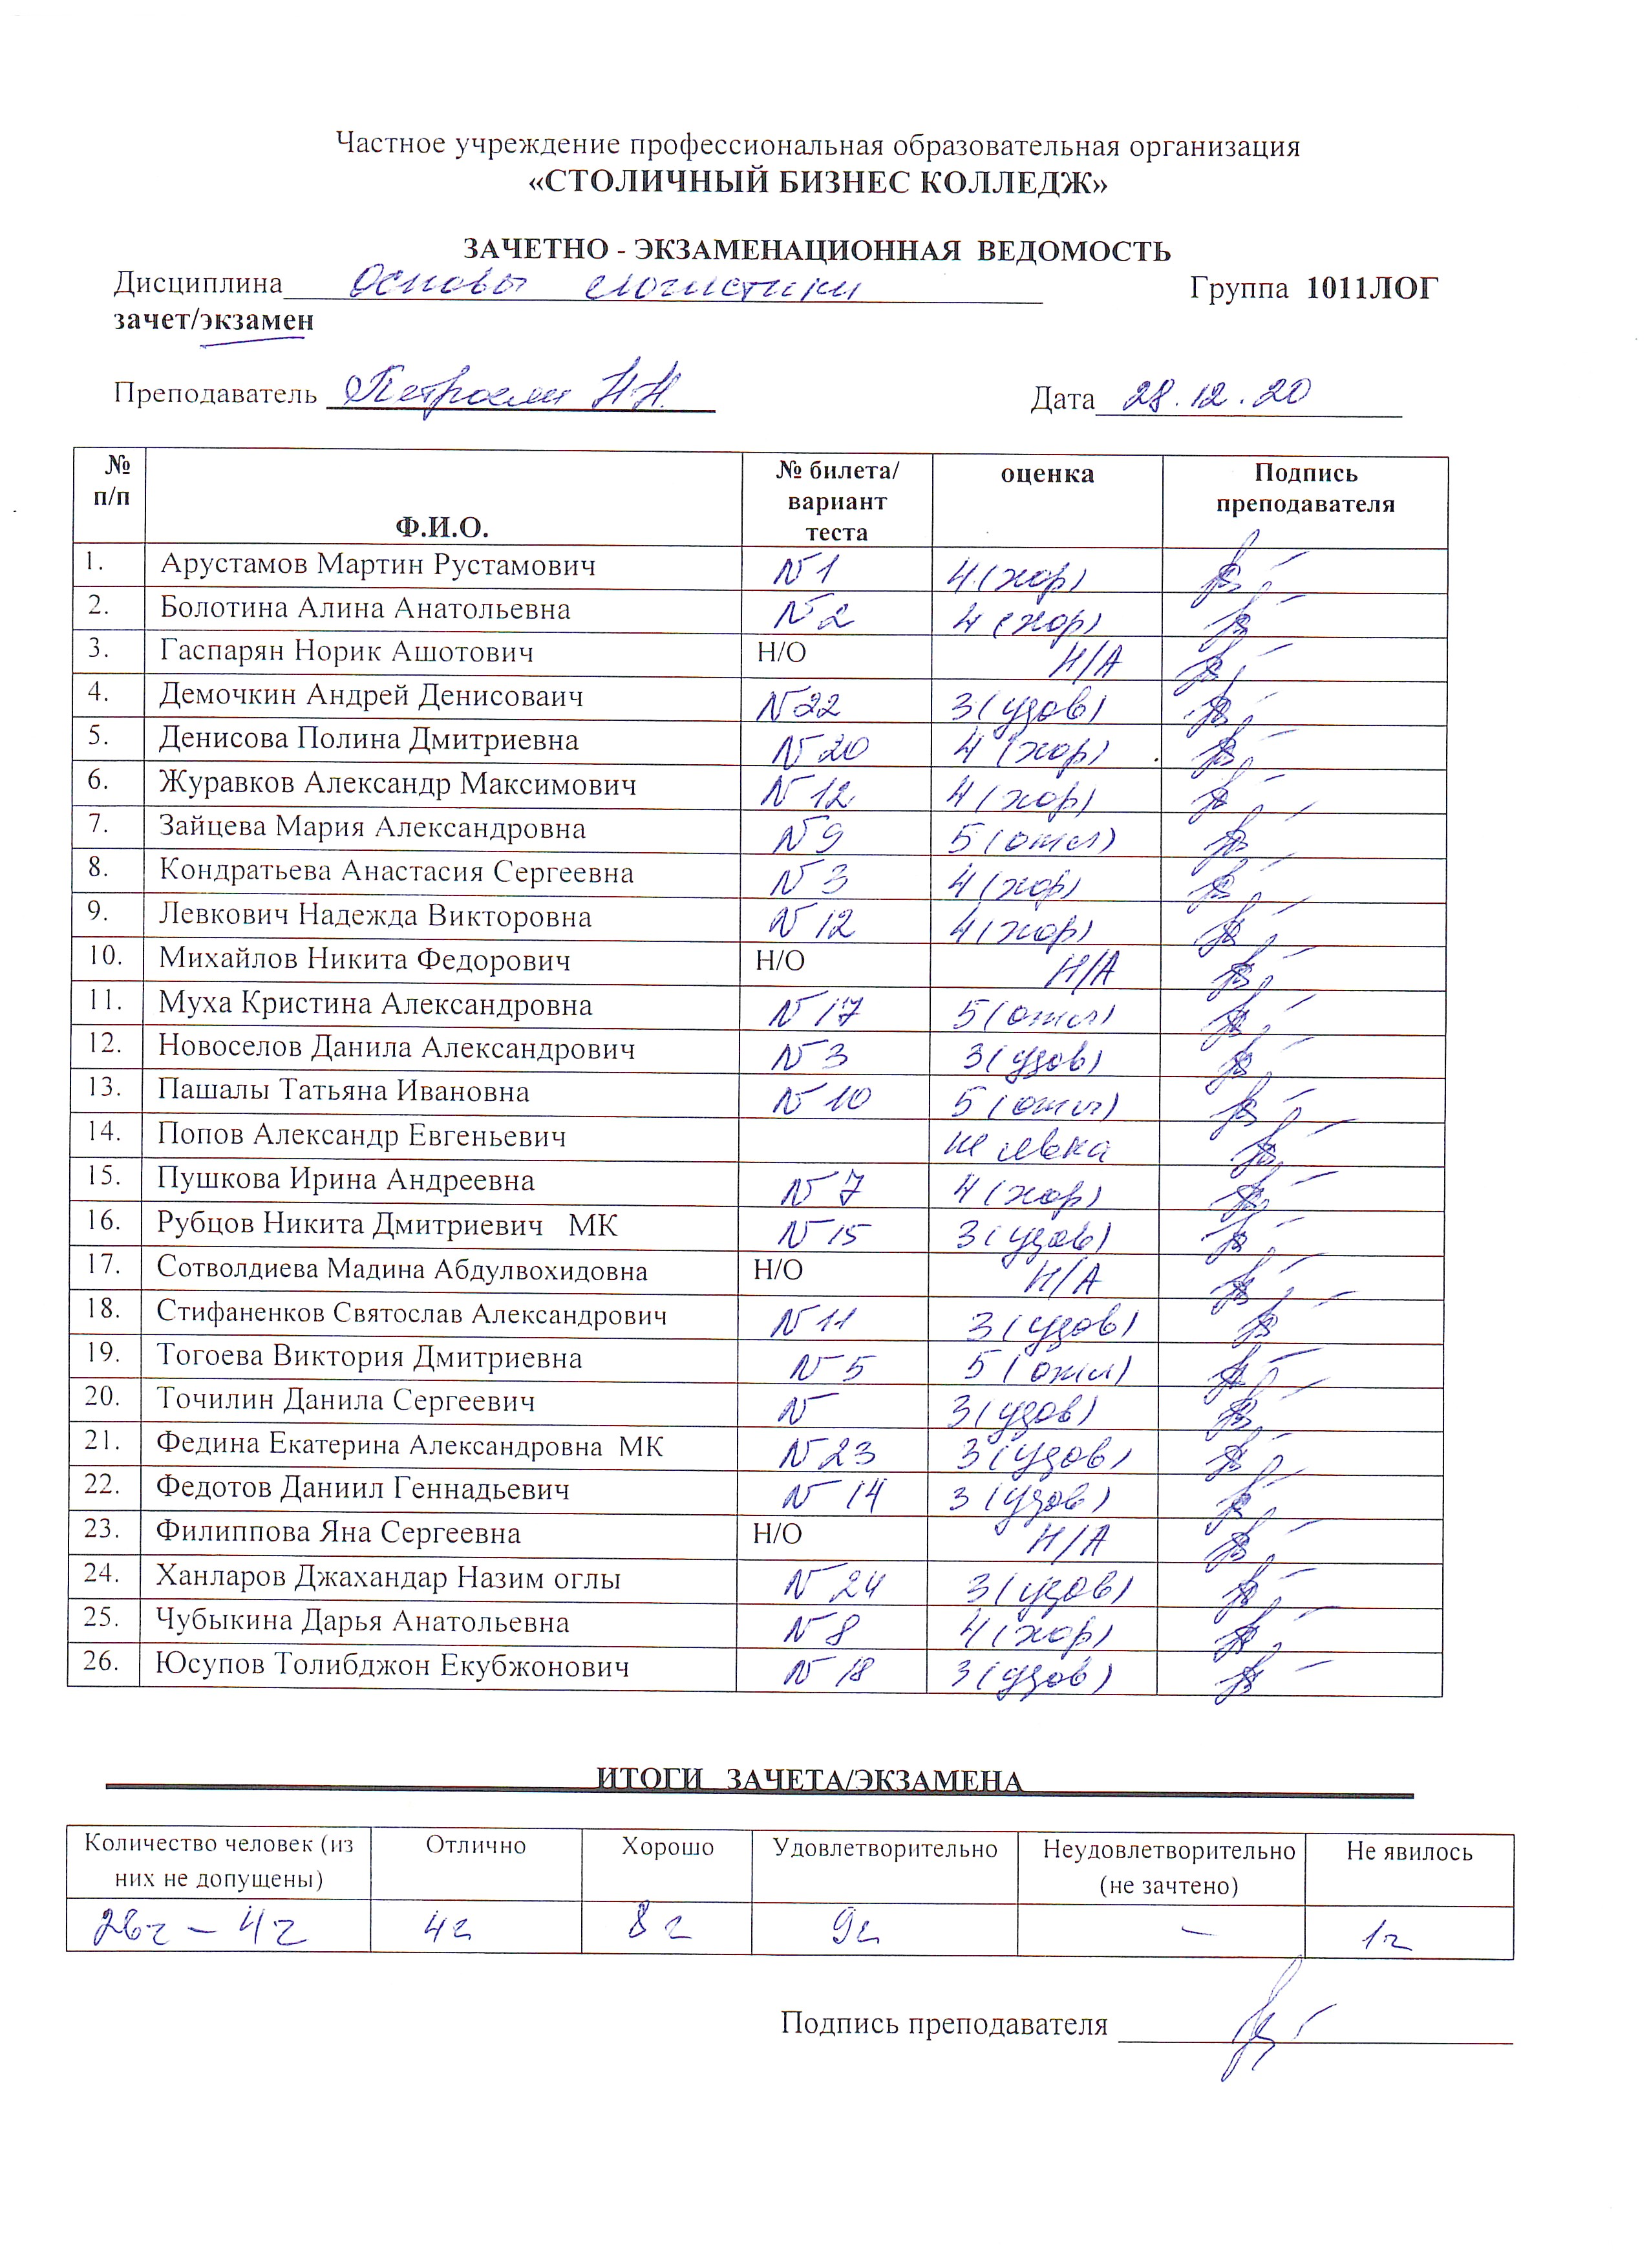 Частное учреждение профессиональная образовательная организация
«СТОЛИЧНЫЙ БИЗНЕС КОЛЛЕДЖ»
ЗАЧЕТНО - ЭКЗАМЕНАЦИОННАЯ ВЕДОМОСТЬ
Дисциплина Основы логистики Группа 1011ЛОГ
зачет/экзамен
Преподаватель Петросян Н.Н. Дата 28.12.20
№ п/п Ф.И.О. № билета/ вариант теста оценка Подпись преподавателя
1. Арустамов Мартин Рустамович №1 4 (хор)
2. Болотина Алина Анатольевна №2 4 (хор)
3. Гаспарян Норик Ашотович Н/О Н/А
4. Демочкин Андрей Денисоваич №22 3 (удов)
5. Денисова Полина Дмитриевна №20 4 (хор)
6. Журавков Александр Максимович №12 4 (хор)
7. Зайцева Мария Александровна №9 5 (отл)
8. Кондратьева Анастасия Сергеевна №3 4 (хор)
9. Левкович Надежда Викторовна №12 4 (хор)
10. Михайлов Никита Федорович Н/О Н/А
11. Муха Кристина Александровна №17 5 (отл)
12. Новоселов Данила Александрович №3 3 (удов)
13. Пашалы Татьяна Ивановна №10 5 (отл)
14. Попов Александр Евгеньевич не явка
15. Пушкова Ирина Андреевна №7 4 (хор)
16. Рубцов Никита Дмитриевич МК №15 3 (удов)
17. Сотволдиева Мадина Абдулвохидовна Н/О Н/А
18. Стифаненков Святослав Александрович №11 3 (удов)
19. Тогоева Виктория Дмитриевна №5 5 (отл)
20. Точилин Данила Сергеевич № 3 (удов)
21. Федина Екатерина Александровна МК №23 3 (удов)
22. Федотов Даниил Геннадьевич №14 3 (удов)
23. Филиппова Яна Сергеевна Н/О Н/А
24. Ханларов Джахандар Назим оглы №24 3 (удов)
25. Чубыкина Дарья Анатольевна №8 4 (хор)
26. Юсупов Толибджон Екубжонович №18 3 (удов)
ИТОГИ ЗАЧЕТА/ЭКЗАМЕНА
Количество человек (из них не допущены) Отлично Хорошо Удовлетворительно Неудовлетворительно (не зачтено) Не явилось
26ч – 4ч 4ч 8ч 9ч – 1ч
Подпись преподавателя